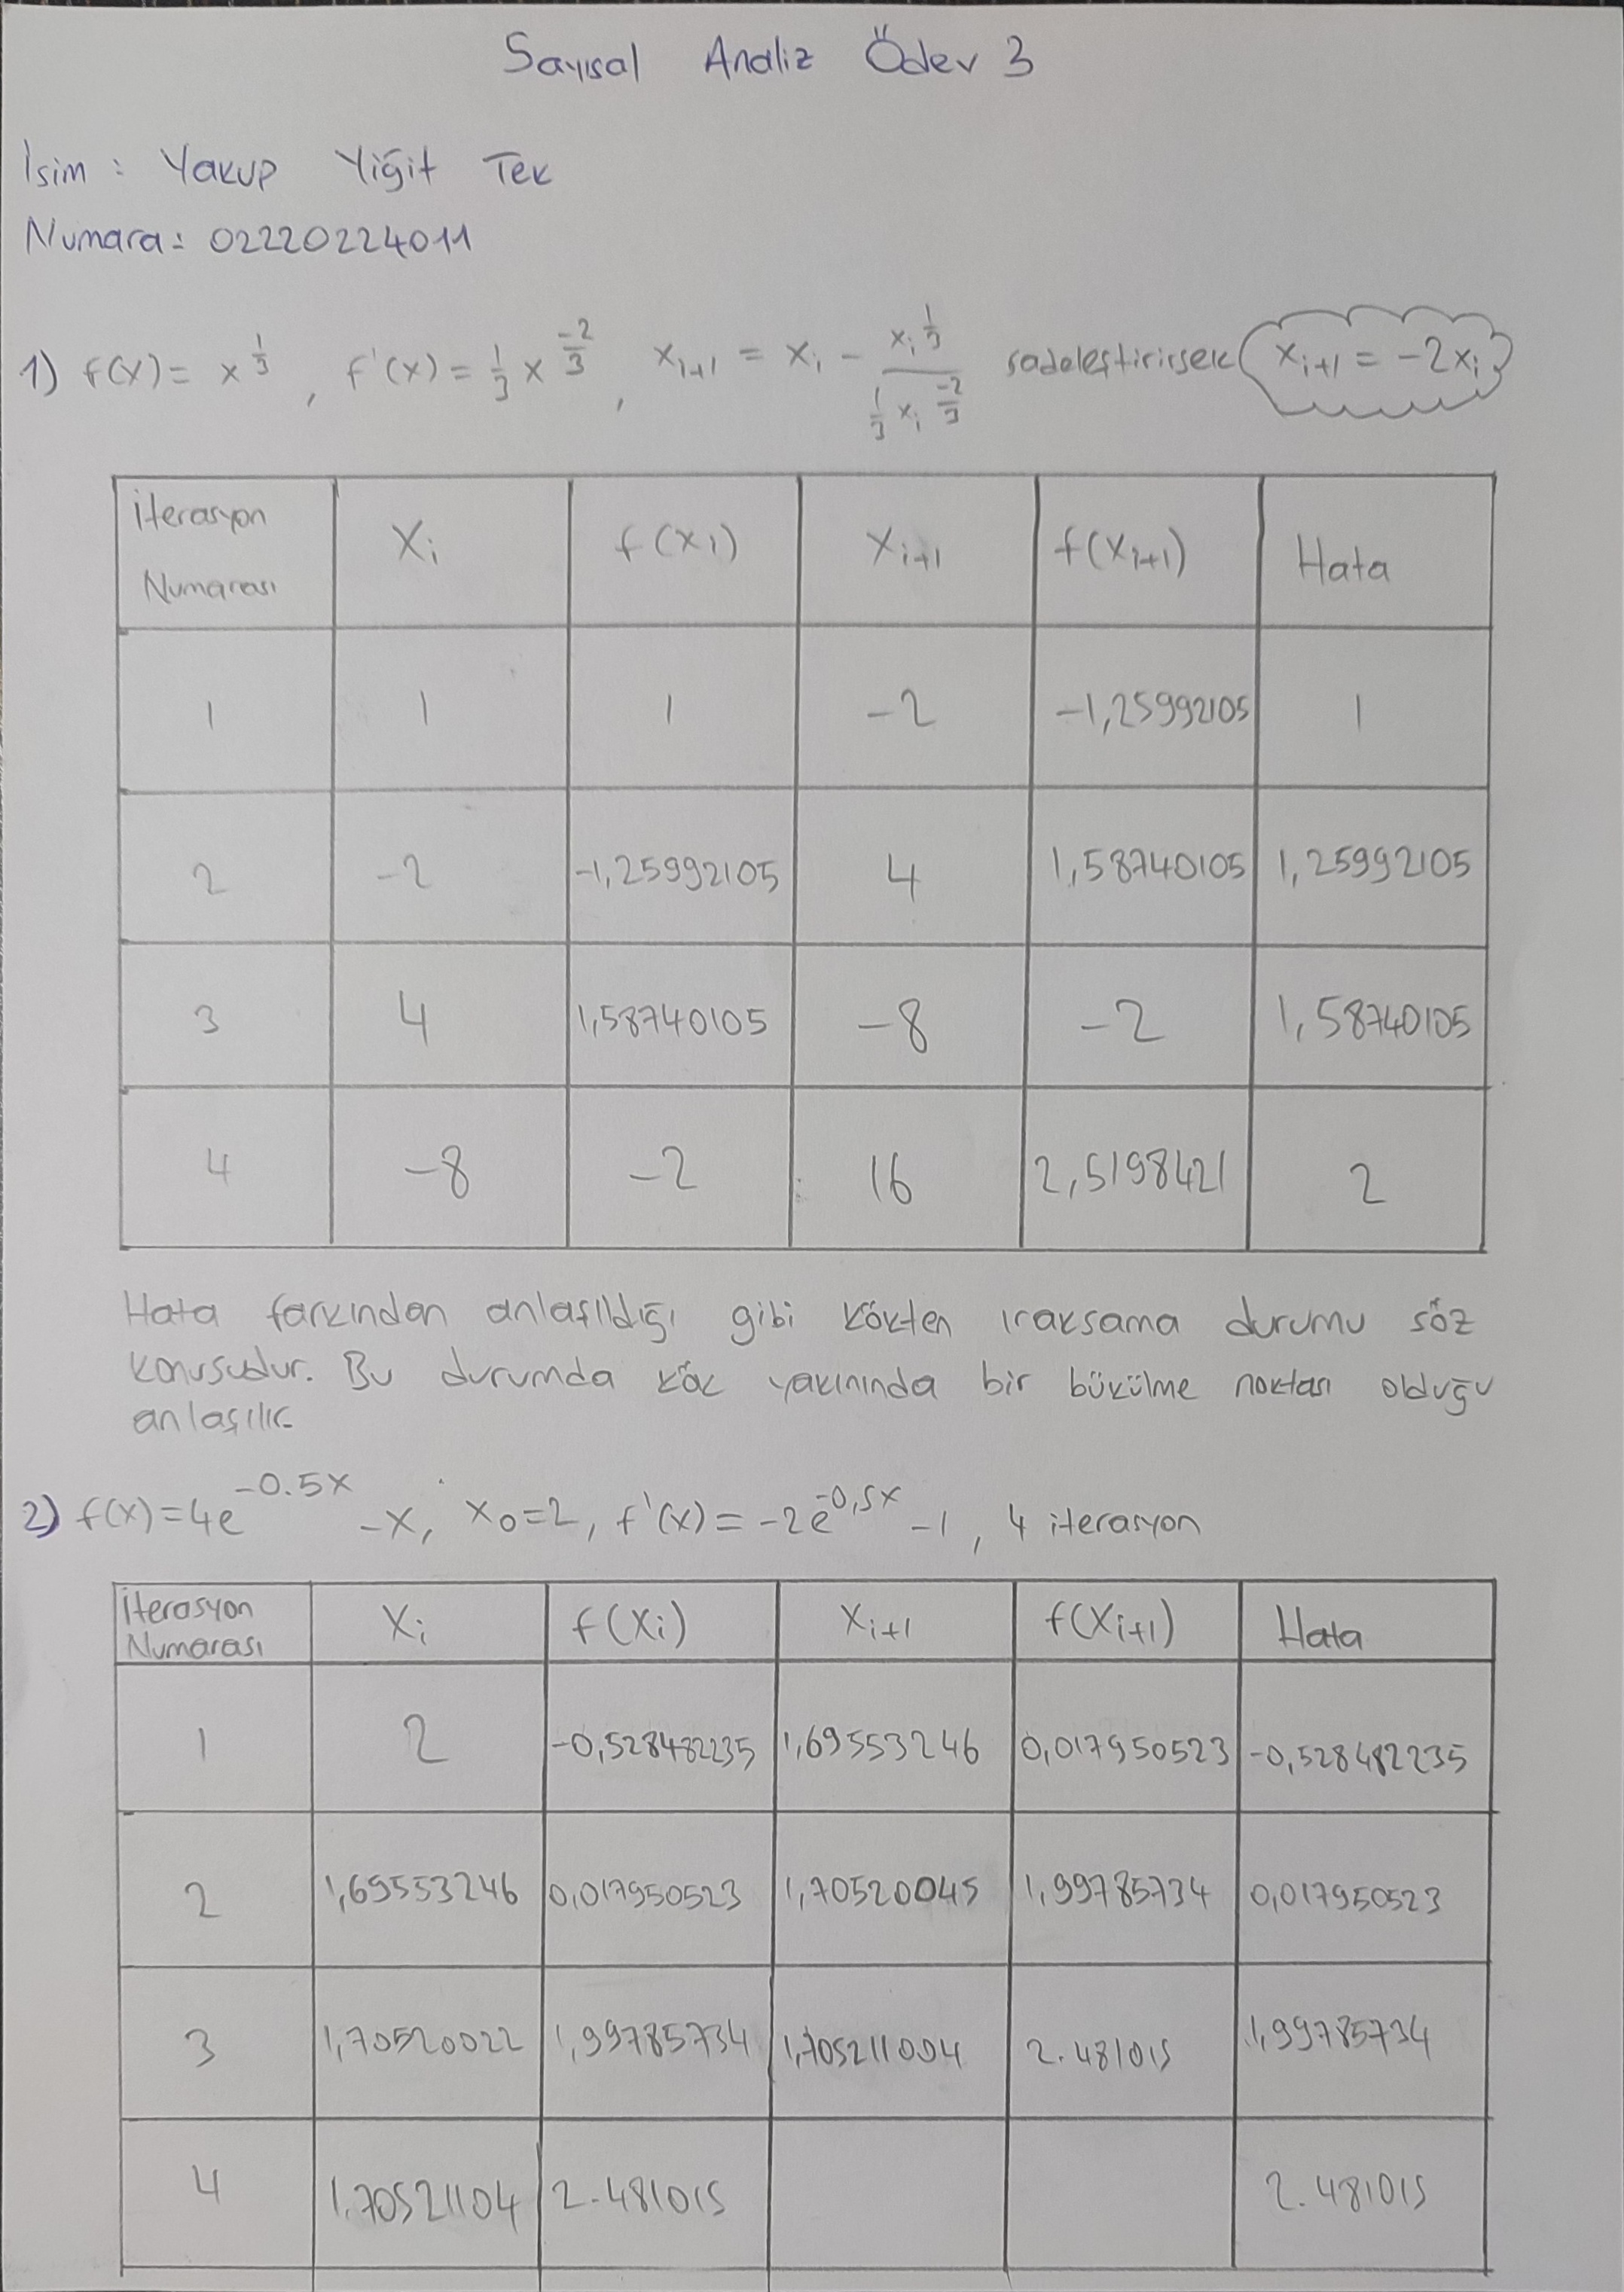 Sayısal Analiz Ödev 3
İsim : Yakup Yiğit Tek
Numara : 02220224011
1) f(x) = x^1/3 , f'(x) = 1/3 x^-2/3 , x_i+1 = x_i - x_i^1/3 / (1/3 x_i^-2/3) sadeleştirirsek x_i+1 = -2x_i
İterasyon Numarası | X_i | f(x_i) | X_i+1 | f(x_i+1) | Hata
1 | 1 | 1 | -2 | -1,25992105 | 1
2 | -2 | -1,25992105 | 4 | 1,58740105 | 1,25992105
3 | 4 | 1,58740105 | -8 | -2 | 1,58740105
4 | -8 | -2 | 16 | 2,5198421 | 2
Hata farkından anlaşıldığı gibi kökten ıraksama durumu söz
konusudur. Bu durumda kök yakınında bir bükülme noktası olduğu
anlaşılır.
2) f(x) = 4e^-0.5x - x, x_0 = 2, f'(x) = -2e^-0,5x - 1 , 4 iterasyon
İterasyon Numarası | X_i | f(X_i) | X_i+1 | f(X_i+1) | Hata
1 | 2 | -0,528482235 | 1,69553246 | 0,017950523 | -0,528482235
2 | 1,69553246 | 0,017950523 | 1,70520045 | 1,99785734 | 0,017950523
3 | 1,70520022 | 1,99785734 | 1,705211004 | 2.481015 | 1,99785734
4 | 1,70521104 | 2.481015 | | | 2.481015